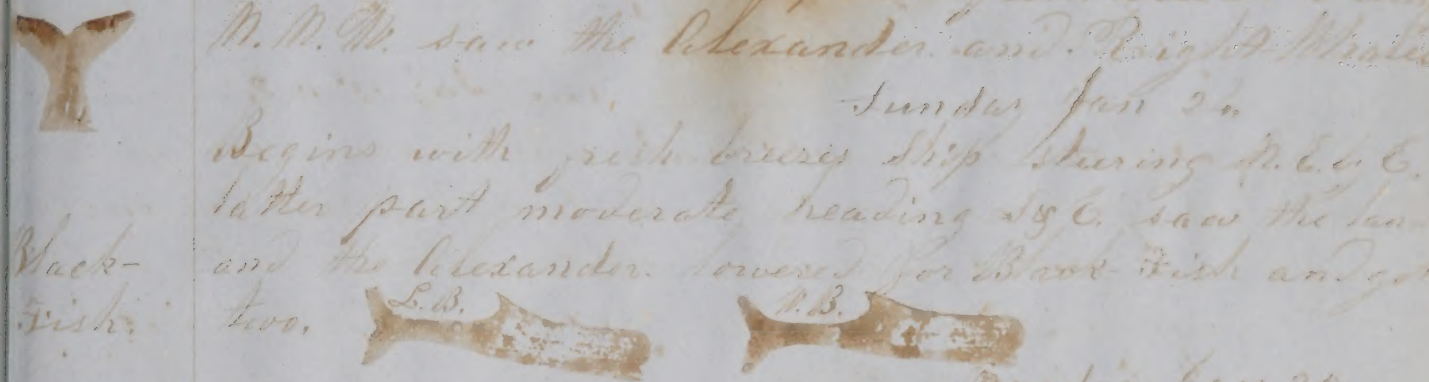 N. N. W. saw the Alexander and Right Whales
Sunday Jan 26
Begins with fresh breezes Ship steering N. E. by E.
latter part moderate heading S & E. saw the lan
Black- and the Alexander. lowered for Black-Fish and got
Fish. two. L. B. W. B.